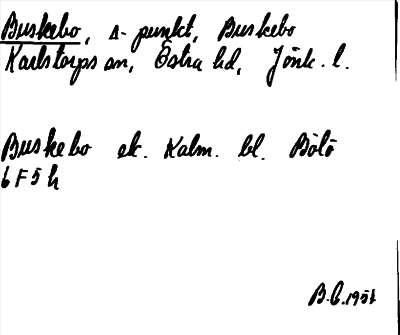 Buskebo, Δ-punkt, Buskebo
Karlstorps sn, Östra hd, Jönk. l.
Buskebo ek. Kalm. bl. Bölö
6 F 5 h